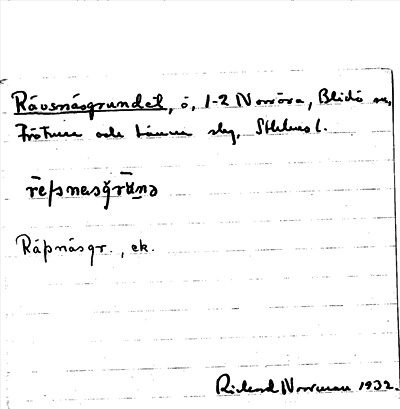 Rävsnäsgrundet, ö, 1-2 Norröra, Blidö sn,
Frötuna och Länna slg, Sthlms l.
rēpsnasgrūnə
Räpsnäsgr., ek.
Rickard Norrman 1932.